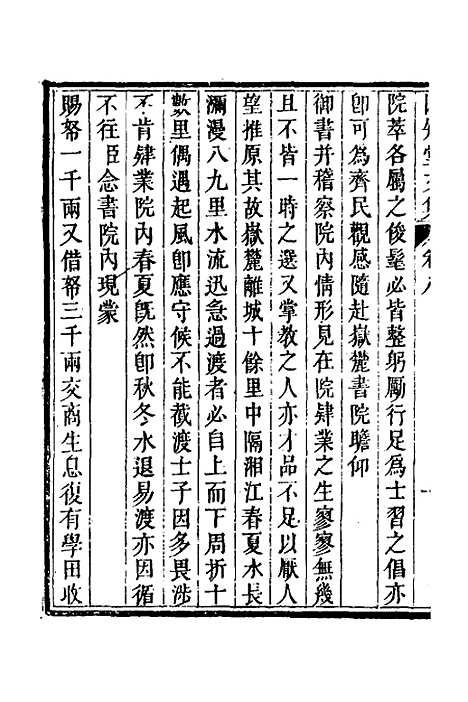 四知堂文集 卷八
院萃各屬之俊髦必皆整躬勵行足為士習之倡亦
卽可為齊民觀感隨赴嶽麓書院瞻仰
御書并稽察院內情形見在院肄業之生寥寥無幾
且不皆一時之選又掌教之人亦才品不足以厭人
望推原其故嶽麓離城十餘里中隔湘江春夏水長
瀰漫八九里水流迅急過渡者必自上而下周折十
數里偶遇起風卽應守候不能截渡士子因多畏涉
不肯肄業院內春夏旣然卽秋冬水退易渡亦因循
不往臣念書院內現蒙
賜帑一千兩又借帑三千兩交商生息復有學田收